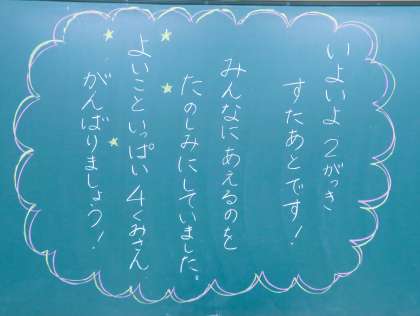 いよいよ 2がっき
すたあとです!
みんなに あえるのを
たのしみにしていました。
よいこと いっぱい 4くみさん
がんばりましょう!